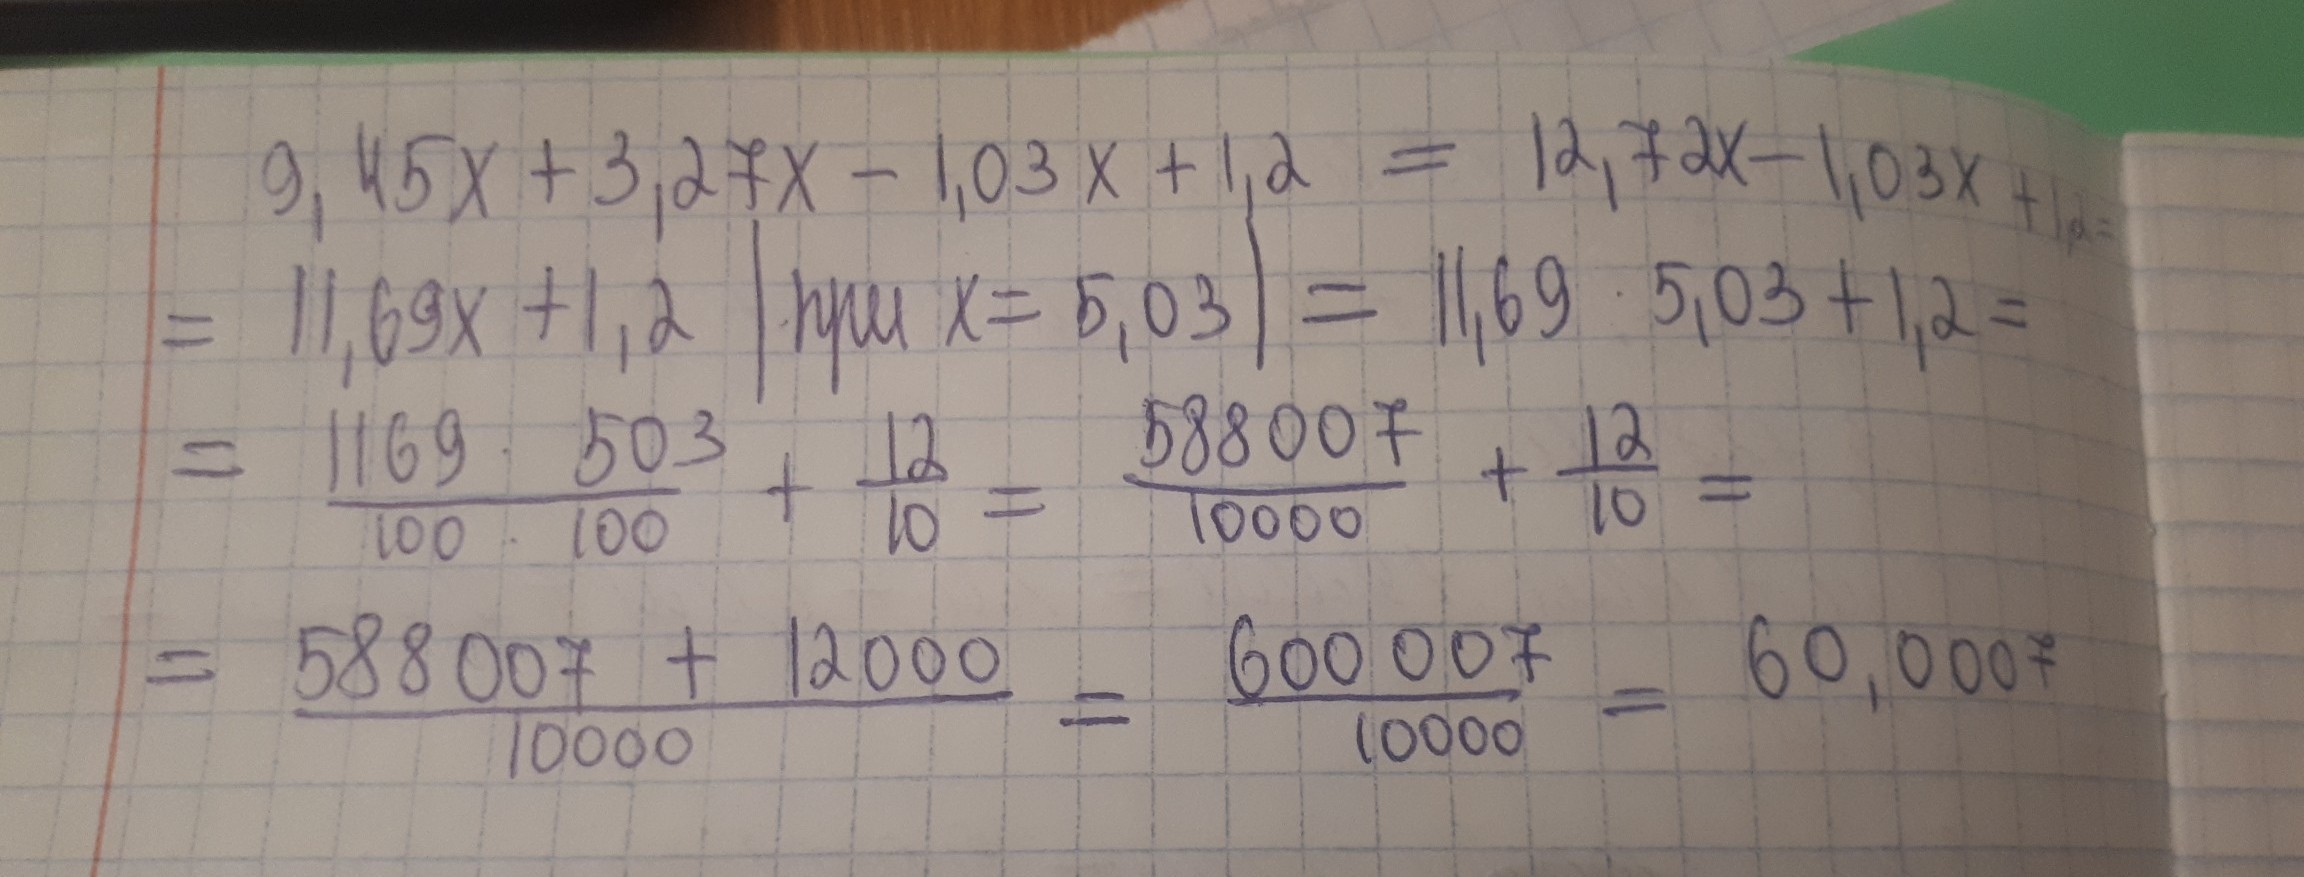 9,45x + 3,27x − 1,03x + 1,2 = 12,72x − 1,03x + 1,2 =
= 11,69x + 1,2 | при x = 5,03 | = 11,69 · 5,03 + 1,2 =
= (1169 · 503)/(100 · 100) + 12/10 = 588007/10000 + 12/10 =
= (588007 + 12000)/10000 = 600007/10000 = 60,0007